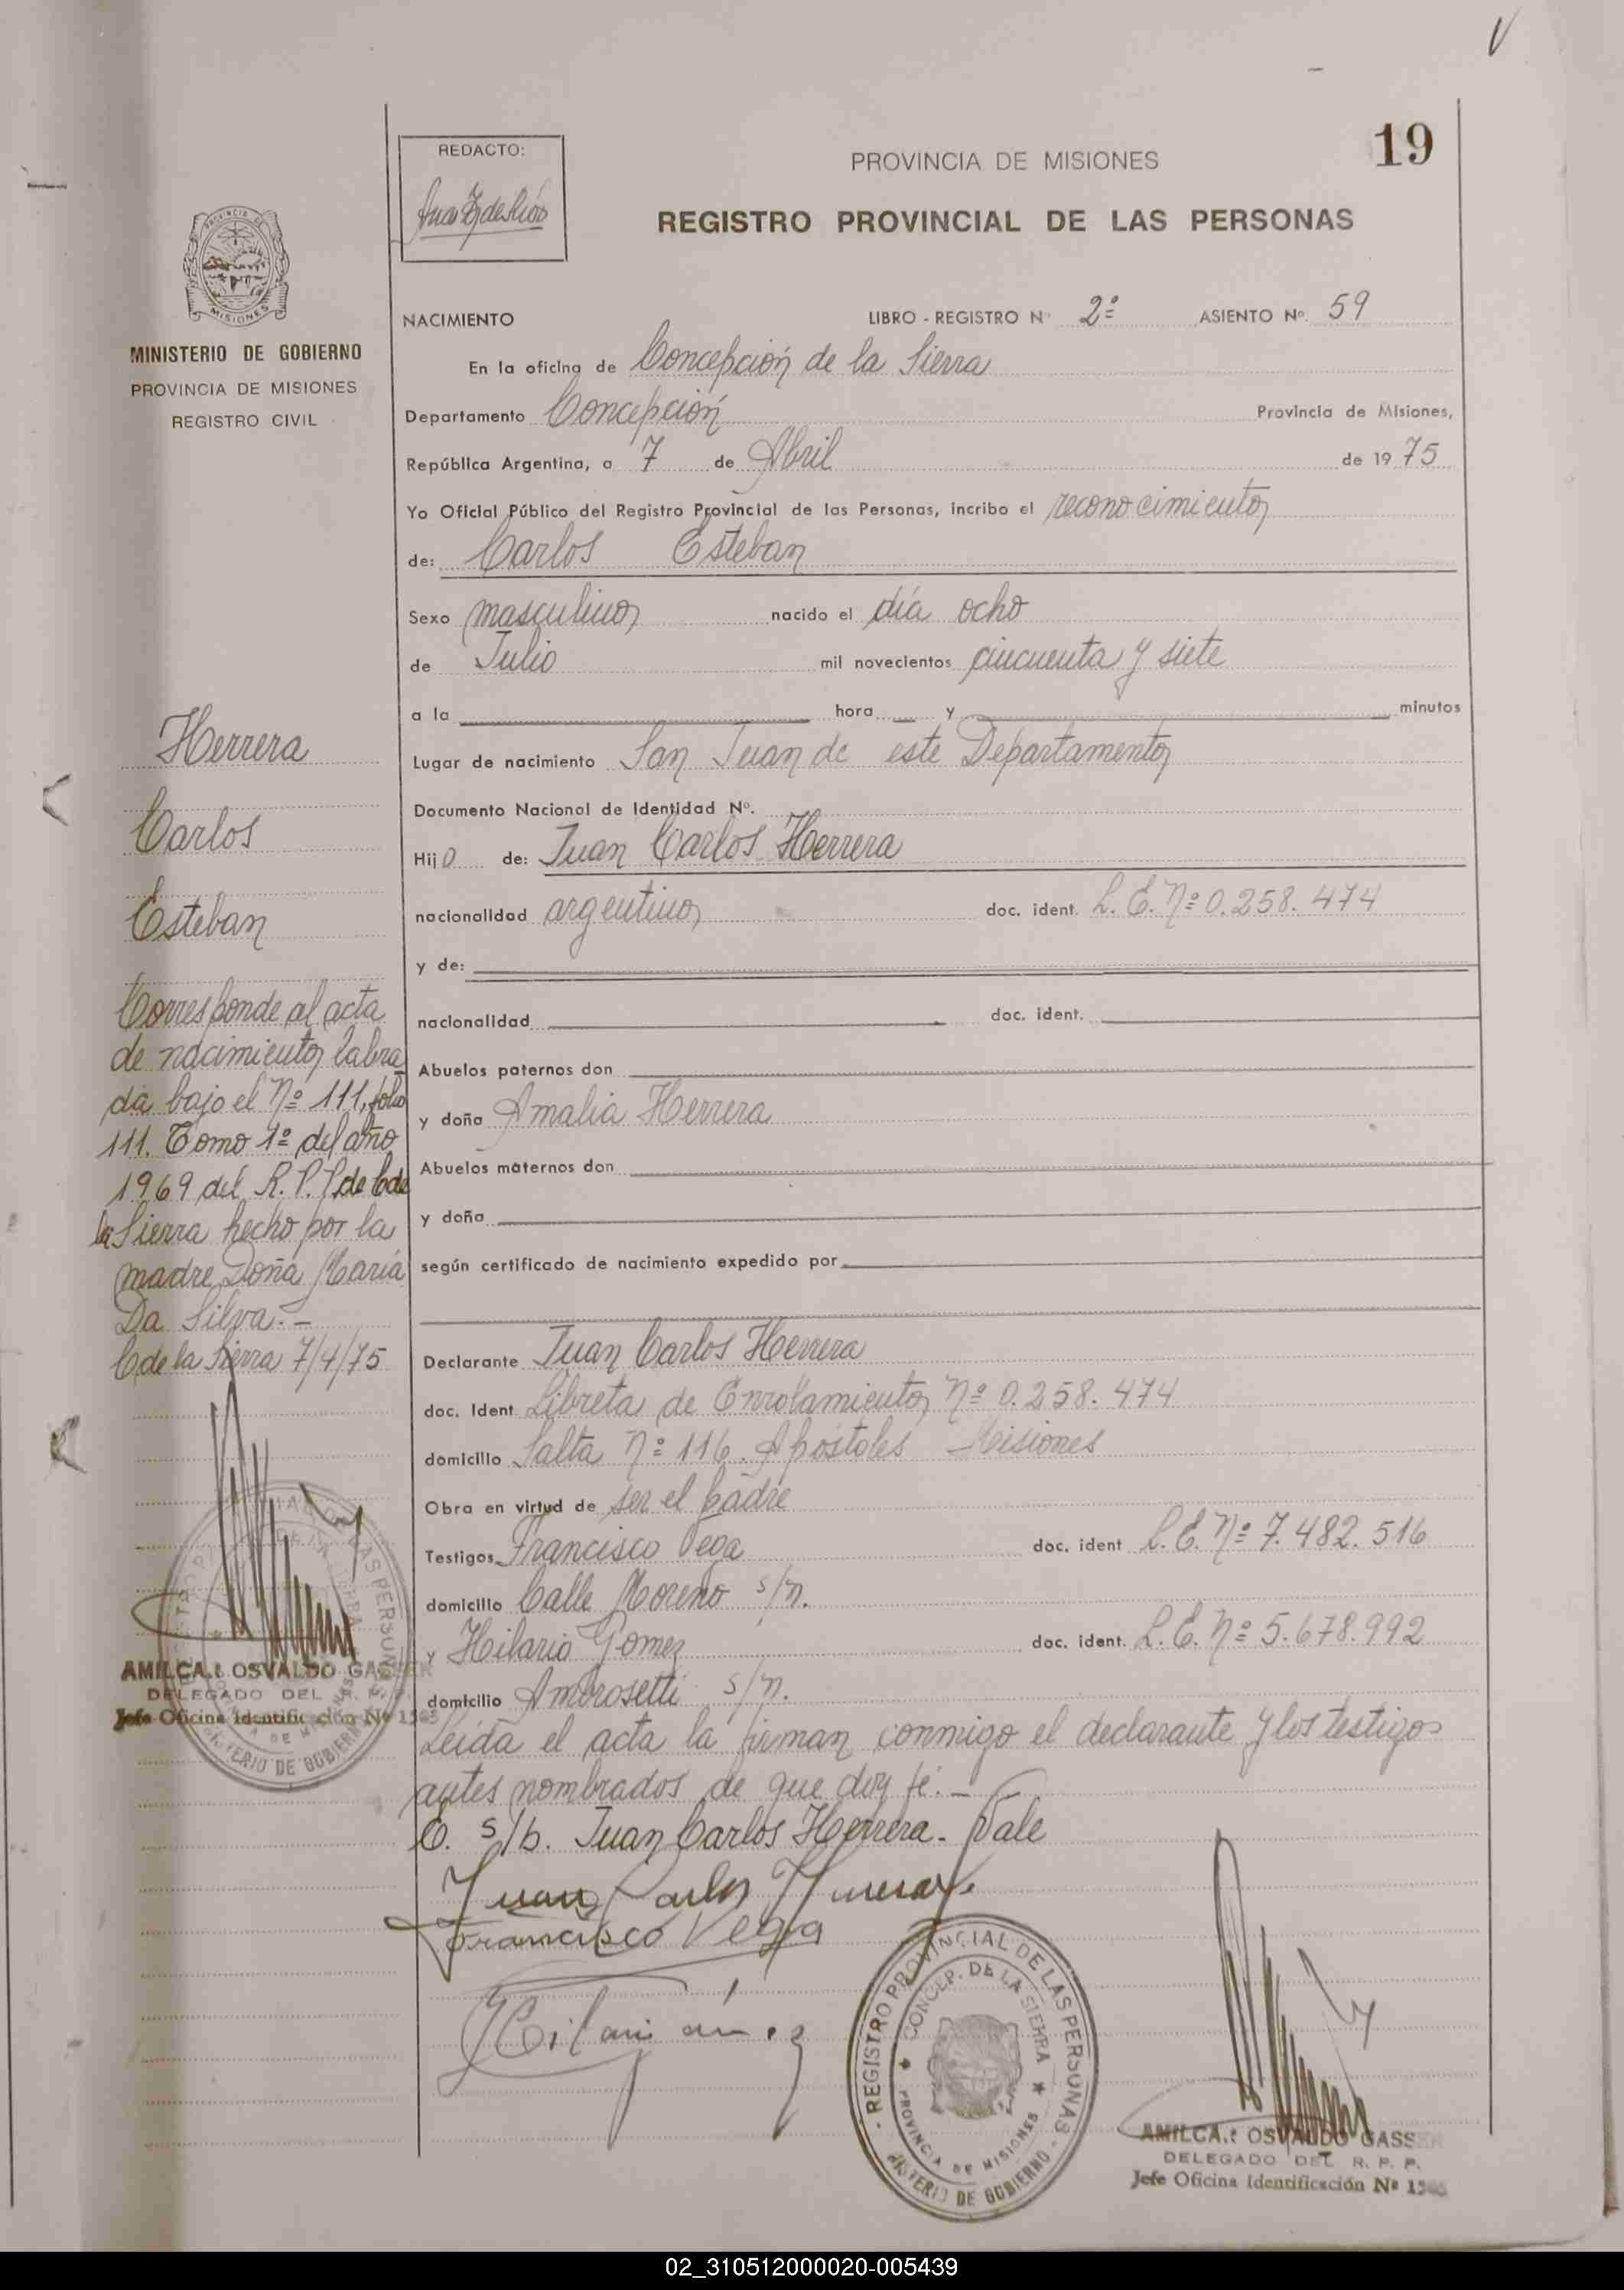 19
REDACTO:
PROVINCIA DE MISIONES
REGISTRO PROVINCIAL DE LAS PERSONAS
PROVINCIA DE
MISIONES
MINISTERIO DE GOBIERNO
PROVINCIA DE MISIONES
REGISTRO CIVIL
NACIMIENTO LIBRO - REGISTRO Nº 2º ASIENTO Nº. 59
En la oficina de Concepción de la Sierra
Departamento Concepción Provincia de Misiones,
República Argentina, a 7 de Abril de 1975
Yo Oficial Público del Registro Provincial de las Personas, incribo el reconocimiento
de: Carlos Esteban
Sexo masculino nacido el día ocho
de Julio mil novecientos cincuenta y siete
a la hora y minutos
Lugar de nacimiento San Juan de este Departamento
Documento Nacional de Identidad Nº.
Hijo de: Juan Carlos Herrera
nacionalidad argentino doc. ident. L.E. Nº 0.258.474
y de:
nacionalidad doc. ident.
Abuelos paternos don
y doña Amalia Herrera
Abuelos maternos don
y doña
según certificado de nacimiento expedido por
Declarante Juan Carlos Herrera
doc. Ident Libreta de Enrolamiento Nº 0.258.474
domicilio Salta Nº 116. Apóstoles Misiones
Obra en virtud de ser el padre
Testigos Francisco Vega doc. ident L.E. Nº 7.482.516
domicilio Calle Moreno s/n.
y Hilario Gomez doc. ident. L.E. Nº 5.678.992
domicilio Ambrosetti s/n.
Leída el acta la firman conmigo el declarante y los testigos
antes nombrados de que doy fé.-
E. s/b. Juan Carlos Herrera. Vale
Juan Carlos Herrera
Francisco Vega
Herrera
Carlos
Esteban
Corresponde al acta
de nacimiento labra
da bajo el Nº 111, folio
111. Tomo 1º del año
1969 del R.P.P. de C de
la Sierra hecho por la
madre Doña María
Da Silva.-
C de la Sierra 7/4/75
AMILCAR OSVALDO GASSER
DELEGADO DEL R. P. P.
Jefe Oficina Identificación Nº
REGISTRO PROVINCIAL DE LAS PERSONAS
CONCEP. DE LA SIERRA
PROVINCIA DE MISIONES
MINISTERIO DE GOBIERNO
AMILCAR OSVALDO GASSER
DELEGADO DEL R. P. P.
Jefe Oficina Identificación Nº
02_310512000020-005439